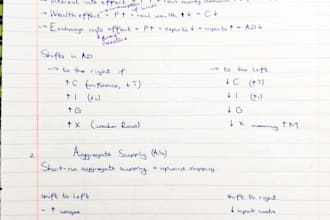 → Interest rate effect
→ Wealth effect = P↑ = real wealth ↓ = C↓
→ Exchange rate effect = P↑ = exports ↓ → imports ↑ = AD↓
Shifts in AD
→ to the right if → to the left
↑C (confidence, ↓T) ↓C (↑T)
↑I (↓i) ↓I (↑i)
↑G ↓G
↑X (weaker Rand) ↓X meaning ↑M
2. Aggregate Supply (AS)
Short-run aggregate supply = upward slopping
shift to left shift to right
- ↑ wages ↓ input costs